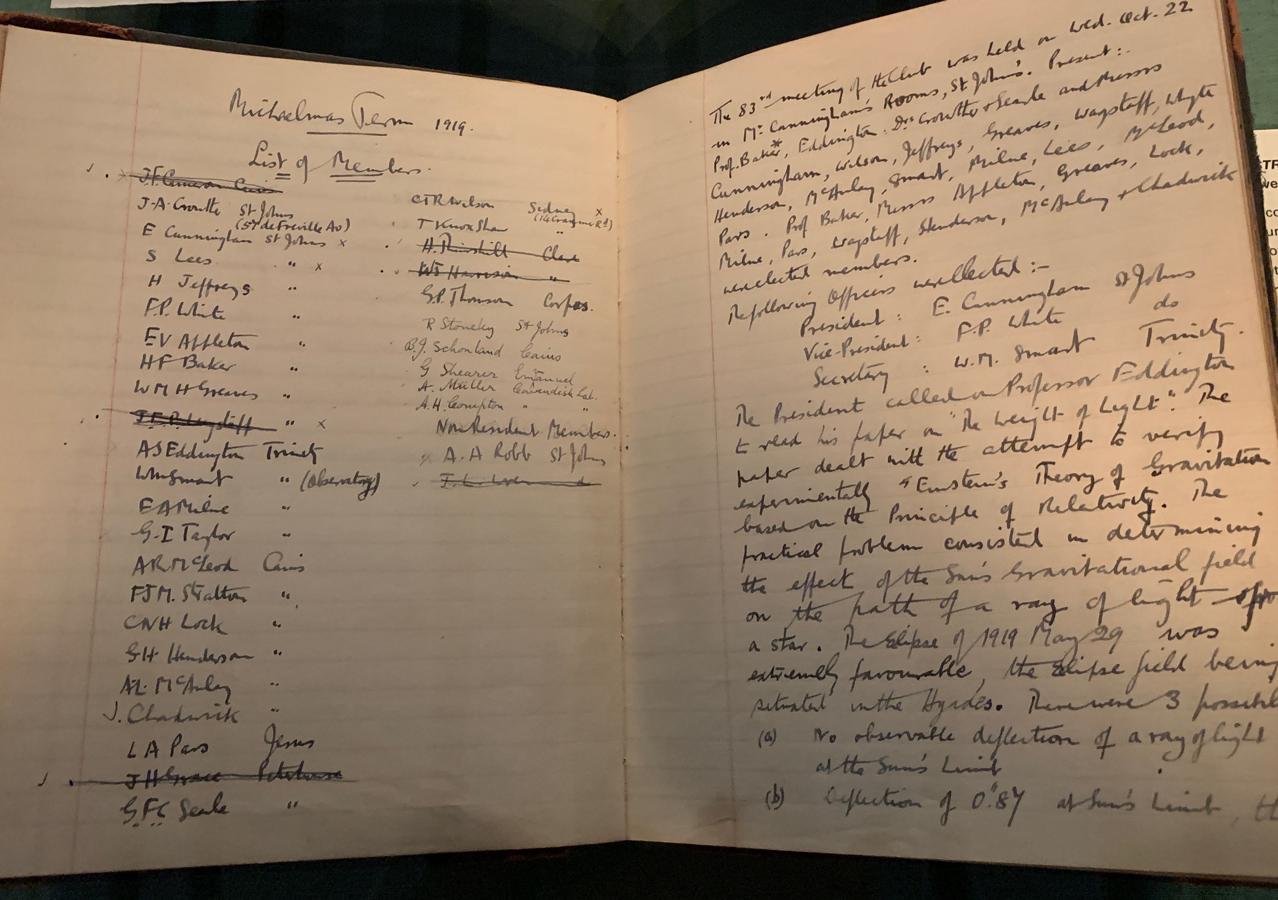 Michaelmas Term 1919.
List of Members.
J.F. Cameron Caius
J.A. Crowther St Johns
(57 de Freville Av)
E Cunningham St Johns x
S Lees " x
H Jeffreys "
F.P. White "
EV Appleton "
HF Baker "
WMH Greaves "
" x
AS Eddington Trinity
WM Smart " (Observatory)
EA Milne "
G.I Taylor "
AR McLeod Caius
FJM. Stratton "
CNH Lock "
GH Henderson "
AL. McAulay "
J. Chadwick "
LA Pars Jesus
JH Grace Peterhouse
G.F.C. Searle "
CTR Wilson Sidney x
T Knox Shaw "
Clare
WJ Harrison "
G.P. Thomson Corpus.
R Stoneley St Johns
B.J. Schonland Caius
G Shearer Emanuel
A. Müller Cavendish Lab.
A.H. Compton " "
Non Resident Members.
A. A Robb St Johns
The 83rd meeting of the Club was held on Wed. Oct. 22
in Mr Cunningham's Rooms, St John's. Present:-
Prof. Baker*, Eddington. Drs Crowther & Searle and Messrs
Cunningham, Wilson, Jeffreys, Greaves, Wagstaff, Whyte
Henderson, McAulay, Smart, Milne, Lees, McLeod,
Pars. Prof Baker, Messrs Appleton, Greaves, Lock,
Milne, Pars, Wagstaff, Henderson, McAulay & Chadwick
were elected members.
The following Officers were elected:-
President: E. Cunningham St Johns
Vice-President: F.P. White do
Secretary: W.M. Smart Trinity.
The President called on Professor Eddington
to read his paper on "The Weight of Light". The
paper dealt with the attempt to verify
experimentally "Einstein's Theory of Gravitation
based on the Principle of Relativity. The
practical problem consisted in determining
the effect of the Sun's Gravitational field
on the path of a ray of light
a star. The Eclipse of 1919 May 29 was
extremely favourable, the Eclipse field being
situated in the Hyades. There were 3 possibl
(a) No observable deflection of a ray of light
at the Sun's Limb
(b) Deflection of 0".87 at Sun's Limb, th